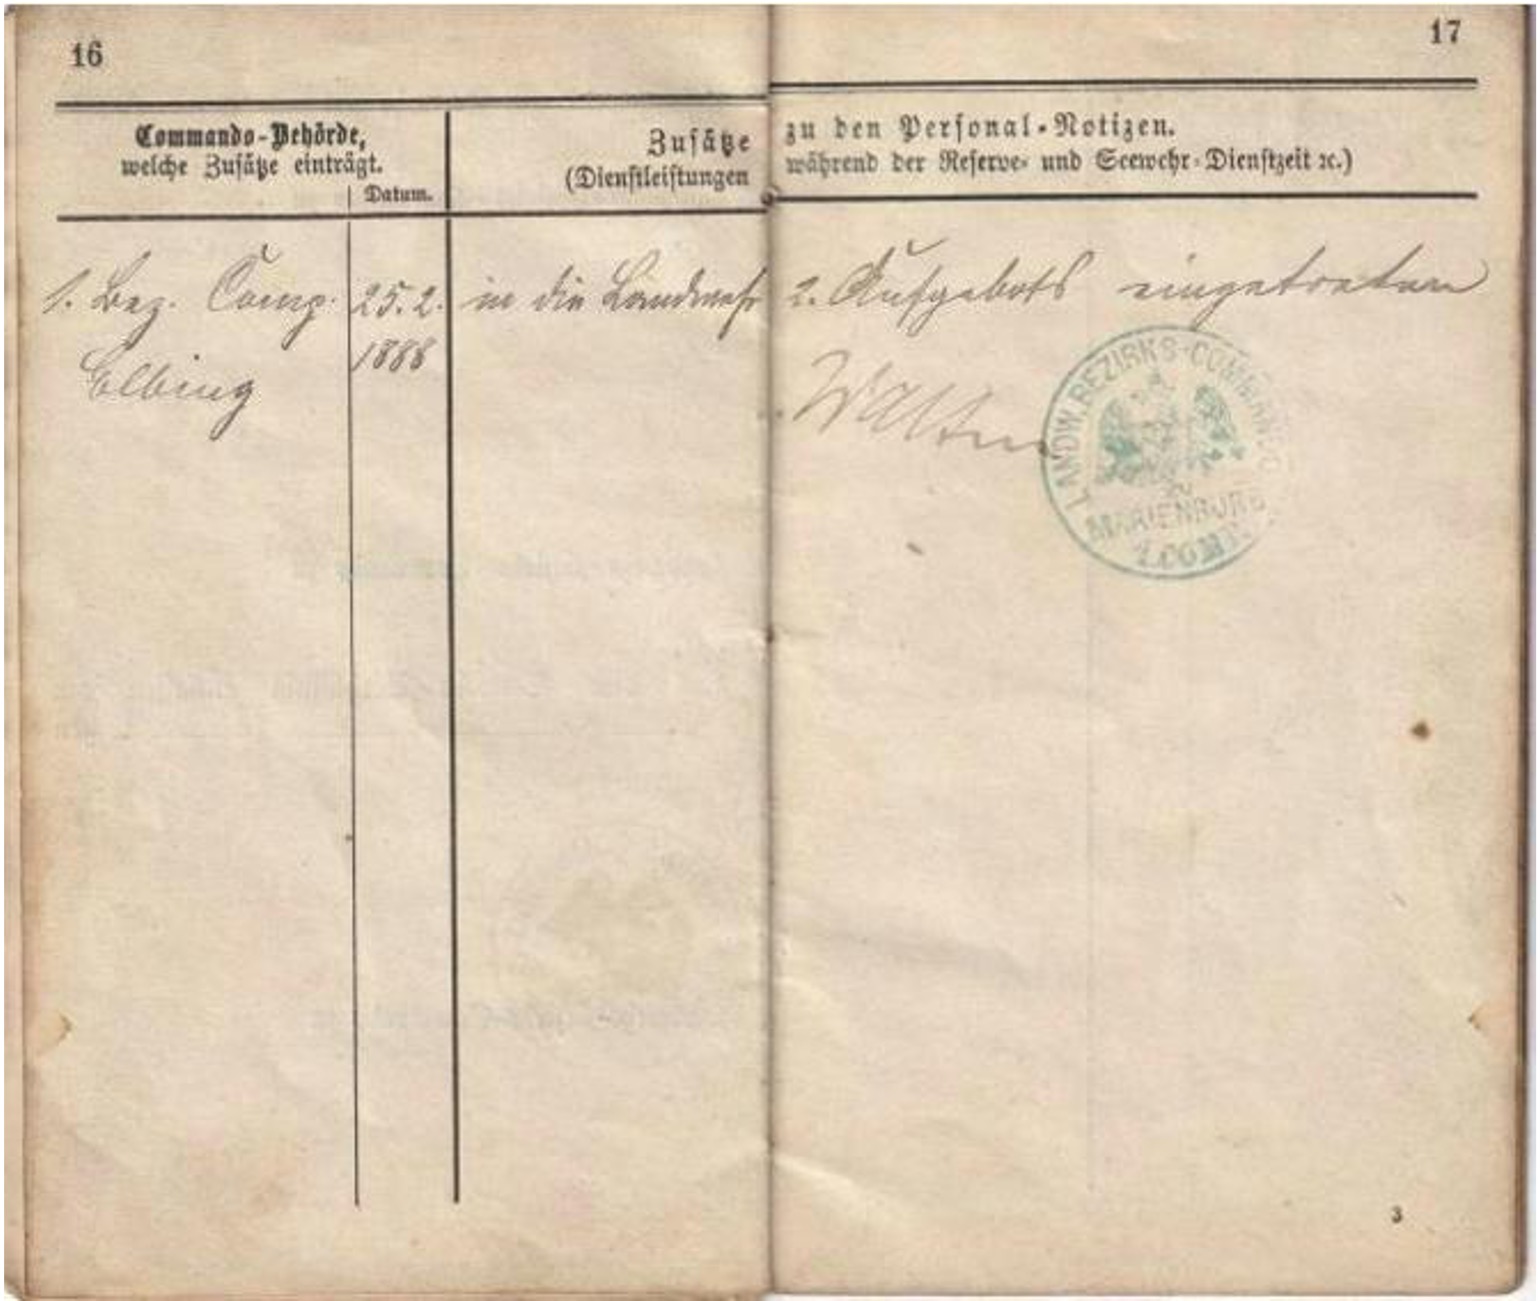 16
17
Commando-Behörde,
welche Zusätze einträgt.
Datum.
Zusätze zu den Personal-Notizen.
(Dienstleistungen während der Reserve- und Seewehr-Dienstzeit ꝛc.)
1. Bez. Comp. 25. 2. in die Landwehr 2. Aufgebots eingetreten
Elbing 1888
LANDW. BEZIRKS-COMMANDO
MARIENBURG
1. COMP.
3